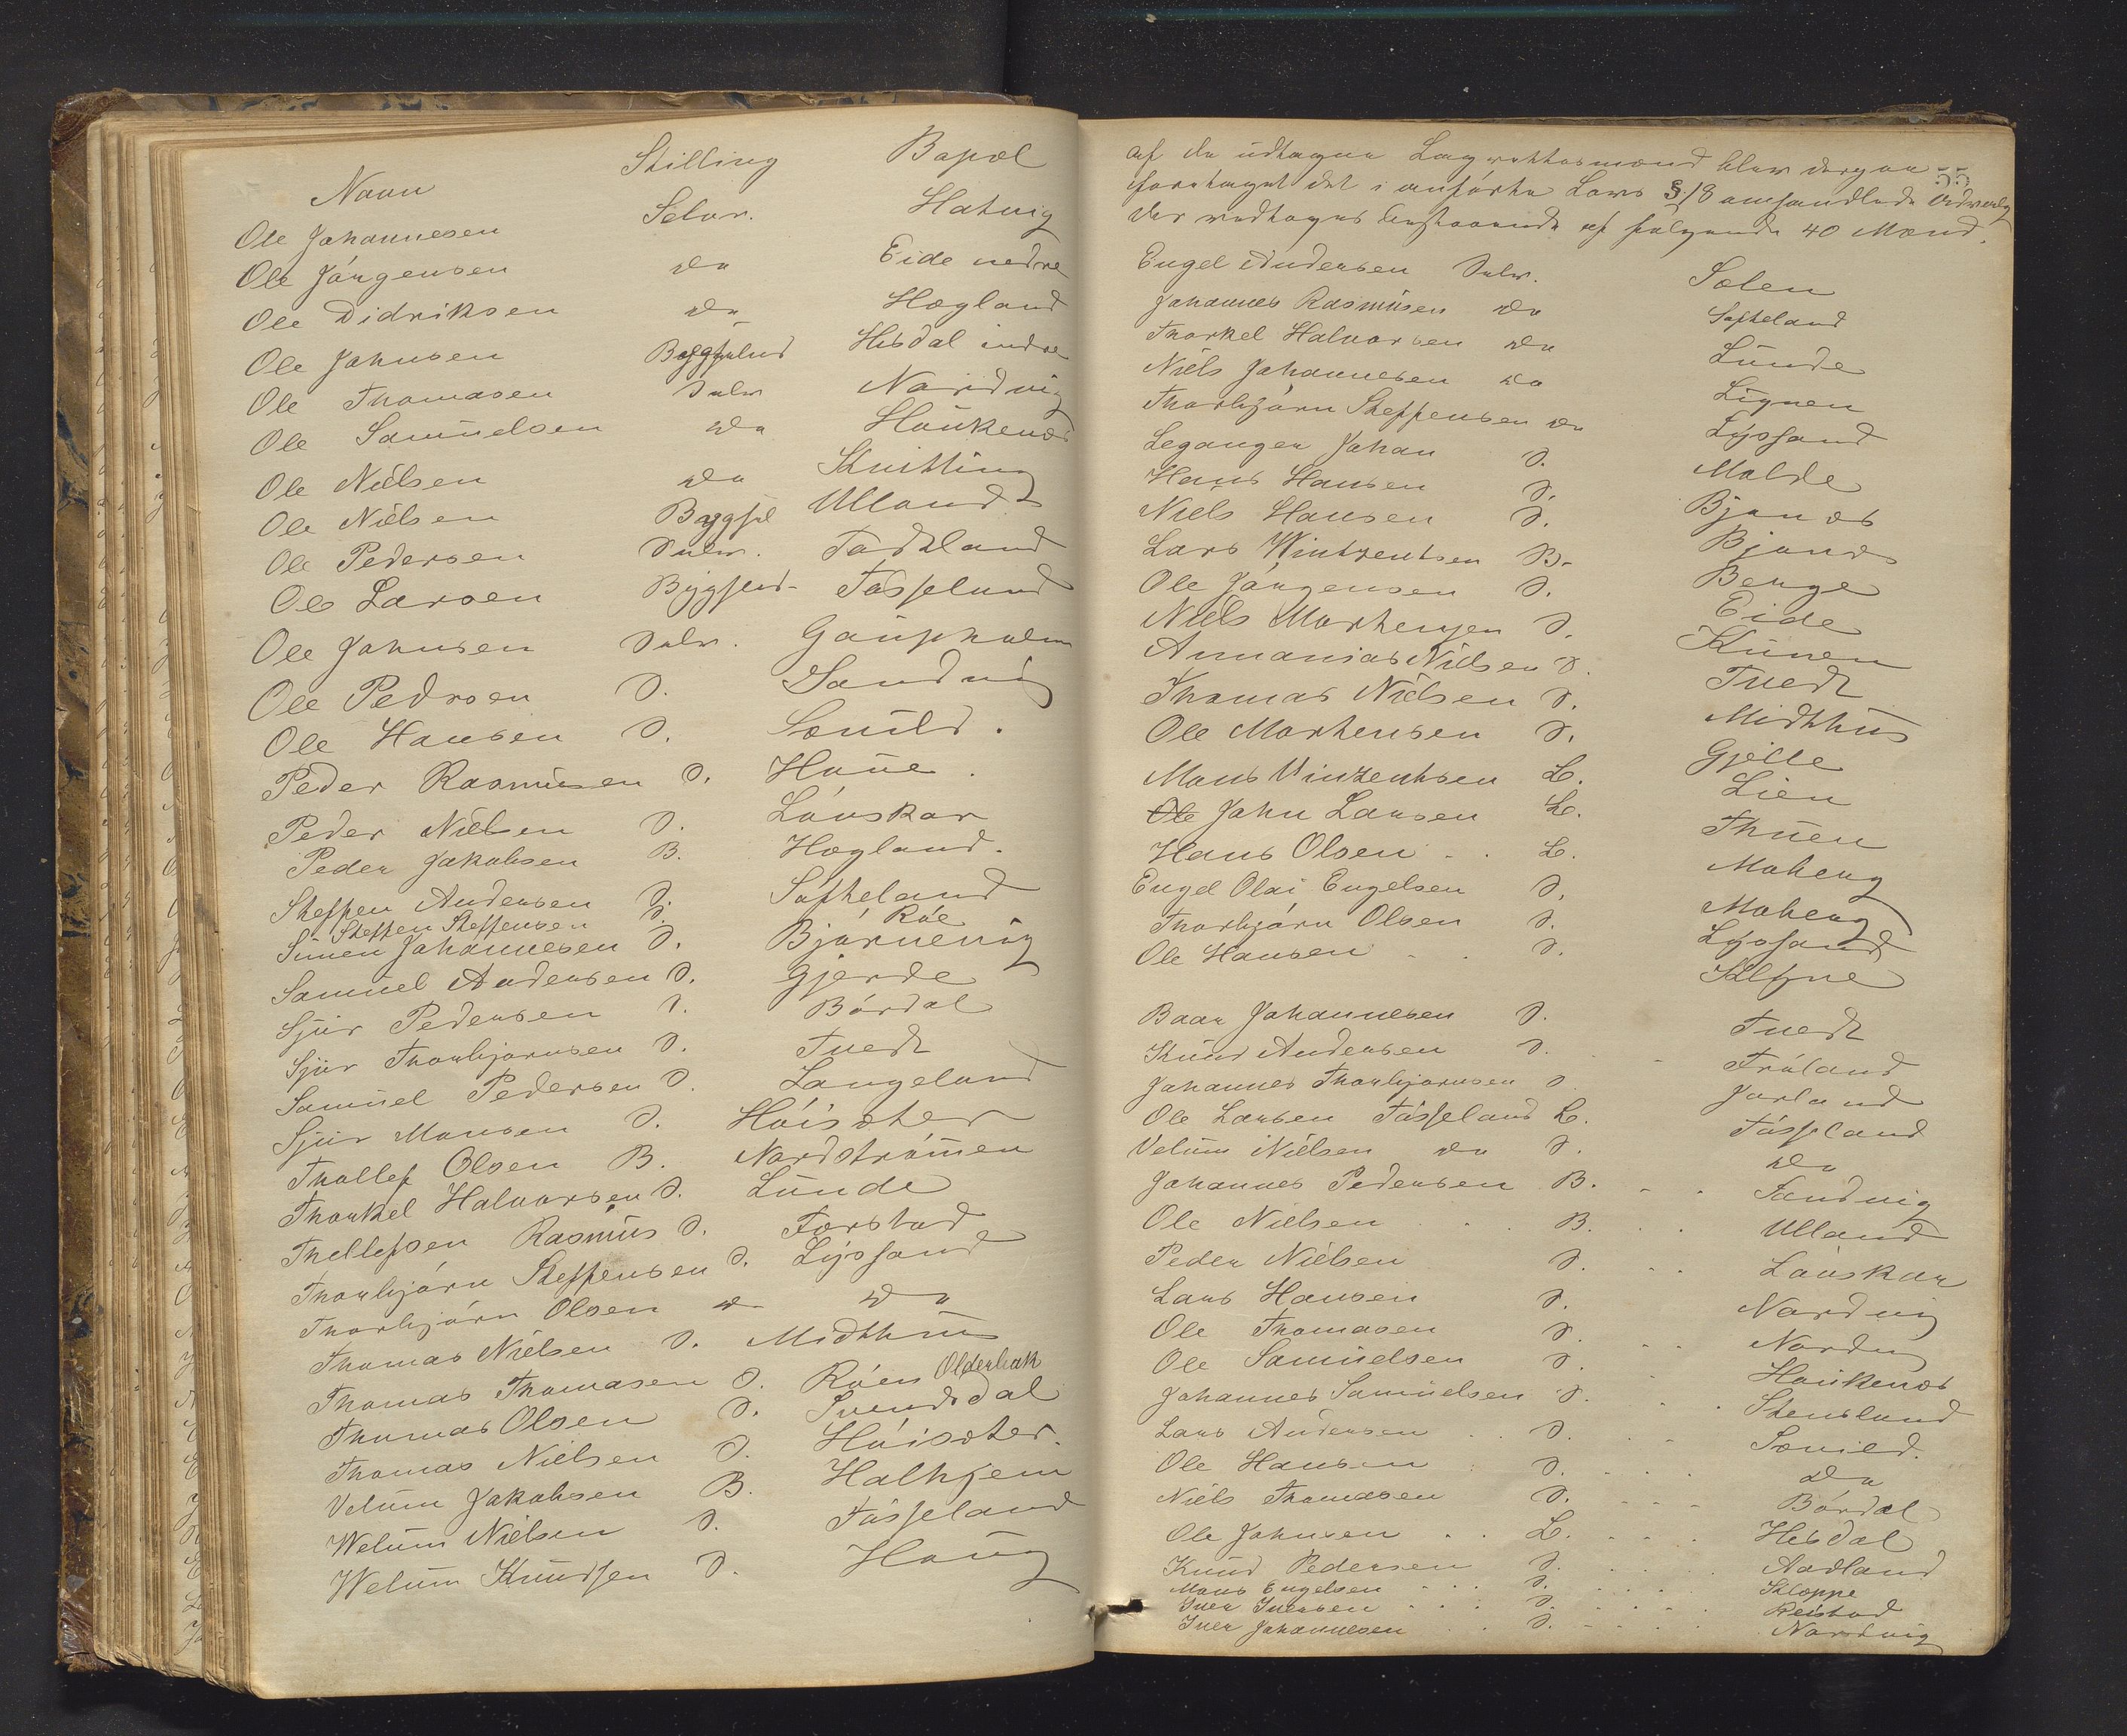 Navn Stilling Bopæl
Ole Johannesen Selvr. Hatvig
Ole Jörgensen do Eide nedre
Ole Didriksen do Hægland
Ole Johnsen Bygselmd Hisdal indre
Ole Thomasen Selv Nordvig
Ole Samuelsen do Haukenæs
Ole Nielsen do Skeitting
Ole Nielsen Bygsel Ulland
Ole Pedersen Selv. Tødtland
Ole Larsen Bygselmd Tøsseland
Ole Johnsen Selv. Gaupholm
Ole Pedrsen S. Sandvig
Ole Hansen S. Sæuld.
Peder Rasmusen S. Haue.
Peder Nielsen S. Lönskar
Peder Jakobsen B. Hægland.
Steffen Andersen S. Søfteland
Steffen Steffensen S. Röe
Simen Johannesen S. Bjørnevig
Samuel Andersen S. Gjerde
Sjur Pedersen S. Bördal
Sjur Thorbjørnsen S. Tvedt
Samuel Pedersen S. Langeland
Sjur Monsen S. Höisæter
Thollef Olsen B. Nordströmen
Thorkel Halvorsen S. Lunde
Thellefsen Rasmus S. Forstad
Thorbjörn Steffensen S. Lysfand
Thorbjörn Olsen do do
Thomas Nielsen S. Midthus
Thomas Thomasen S. Röen Olderbak
Thomas Olsen S. Svendsdal
Thomas Nielsen S. Höisæter.
Velum Jakobsen B. Halhjem
Welum Nielsen S. Tösseland
Welum Knudsen S. Haug
55
af de udtagne Lagrettesmænd blev dergaa
foretaget det i anførte Lovs § 18 omhandlede Udvalg
der vedtoges bestaaende af følgende 40 Mænd.
Engel Andersen Selv. Solen
Johannes Rasmusen do Søfteland
Thorkel Halvorsen do Lunde
Niels Johannesen do Lignen
Thorbjörn Steffensen do Lysfand
Legangen Johan S. Molde
Hans Hansen S. Bjønæs
Niels Hansen S. Bjønæs
Lars Wintzentsen B. Berge
Ole Jörgensen S. Eide
Niels Mortensen S. Kuven
Annanias Nielsen S. Tvedt
Thomas Nielsen S. Midthus
Ole Mortensen S. Gjelle
Mons Vinzentsen L. Lien
Ole John Larsen L. Thuen
Hans Olsen L. Moberg
Engel Olai Engelsen S. Moberg
Thorbjörn Olsen S. Lysfand
Ole Hansen S. Kleyve
Baar Johannesen S. Tvedt
Knud Andersen S. Fröland
Johannes Thorbjørnsen S Jarland
Ole Larsen Tösseland L. Tösseland
Velum Nielsen do S. do
Johannes Pedersen B. Sandvig
Ole Nielsen B. Ulland
Peder Nielsen S. Lönskar
Lars Hansen S. Nordvig
Ole Thomasen S. Nordvig
Ole Samuelsen S. Haukenæs
Johannes Samuelsen S. Stensland
Lars Andersen S. Sævild.
Ole Hansen S. do
Niels Thomasen S. Bördal
Ole Johnsen L. Hisdal
Knud Pedersen S. Aadland
Mons Engelsen S. Skloppe
Iver Iversen S. Reistad
Iver Johannesen S. Nordvig